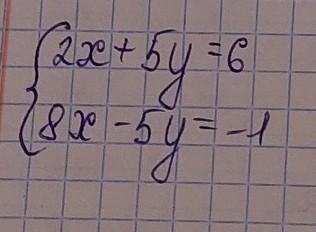 2x + 5y = 6
8x - 5y = -1